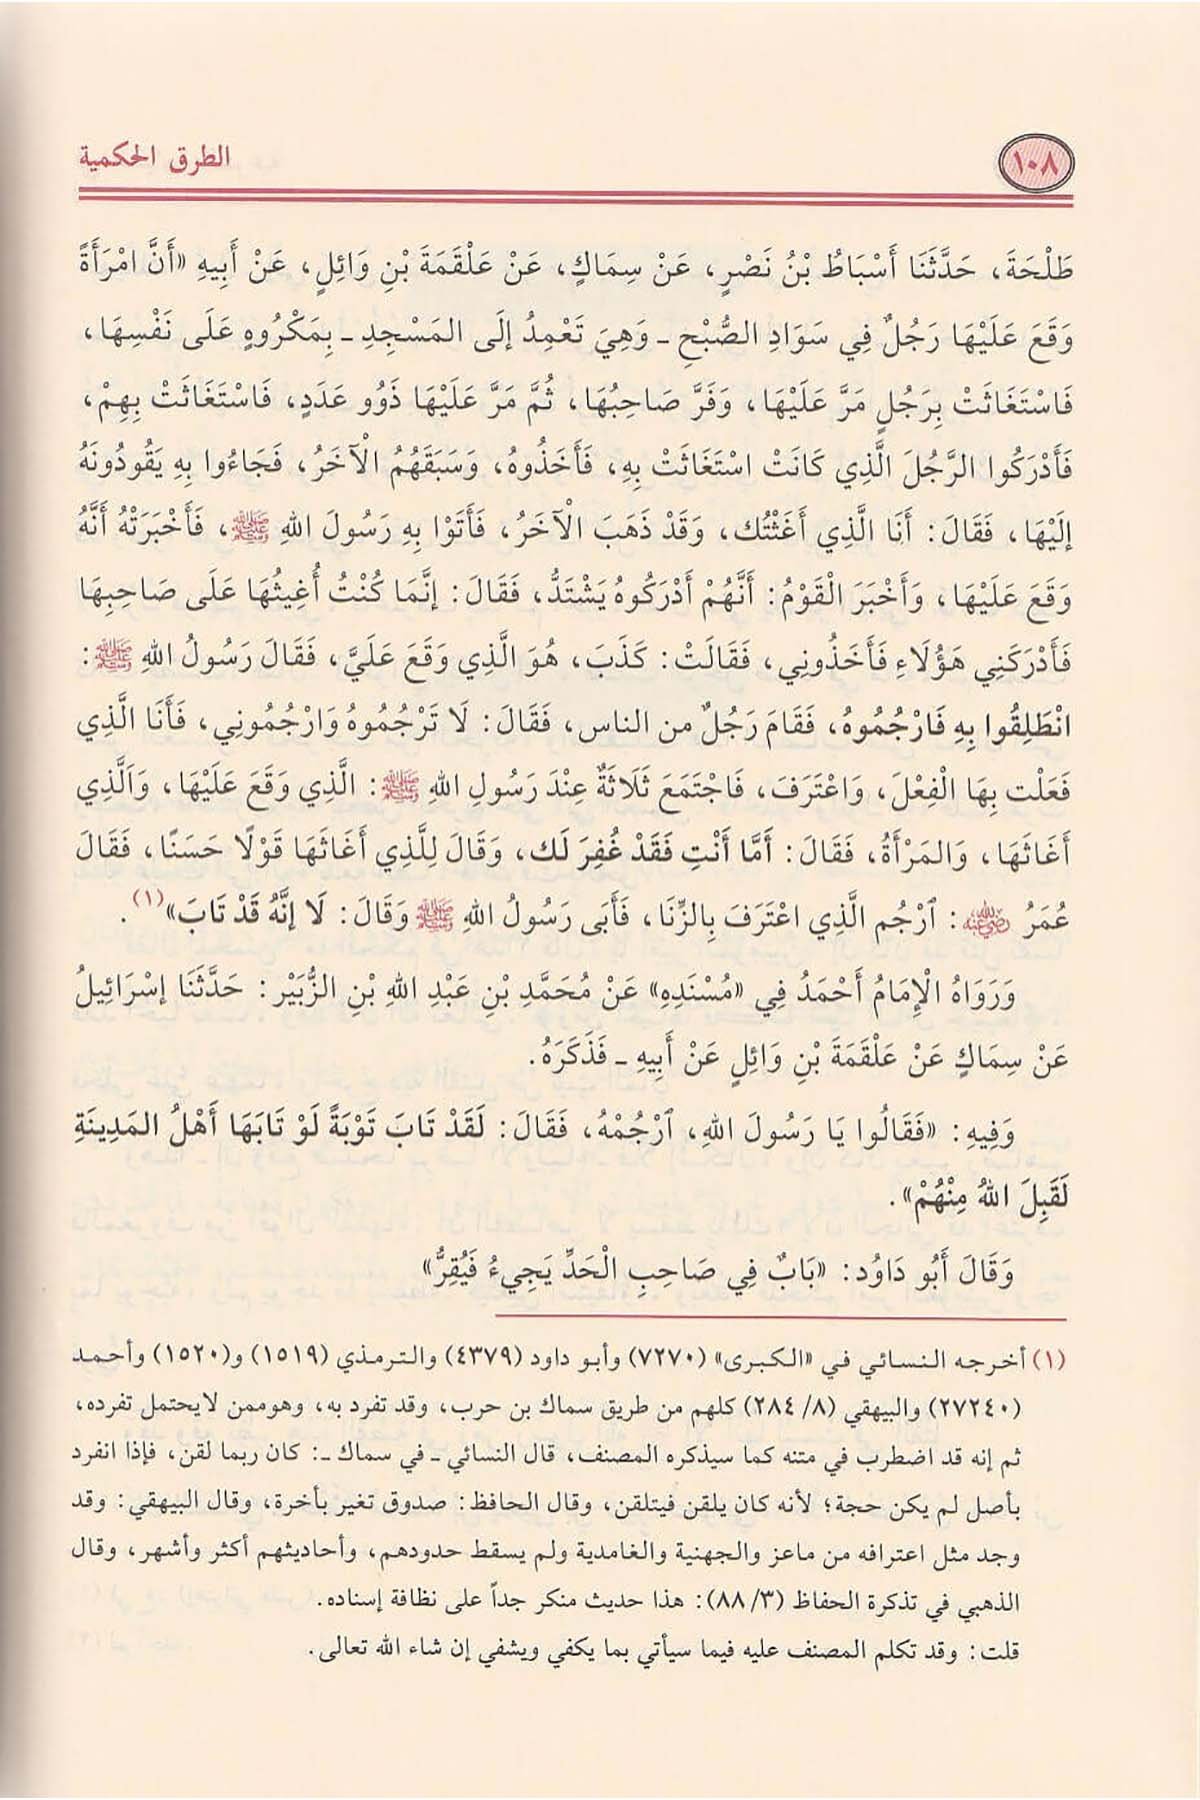 ١٠٨
الطرق الحكمية
طَلْحَةَ، حَدَّثَنَا أَسْبَاطُ بْنُ نَصْرٍ، عَنْ سِمَاكٍ، عَنْ عَلْقَمَةَ بْنِ وَائِلٍ، عَنْ أَبِيهِ «أَنَّ امْرَأَةً
وَقَعَ عَلَيْهَا رَجُلٌ فِي سَوَادِ الصُّبْحِ ـ وَهِيَ تَعْمِدُ إلَى المَسْجِدِ ـ بِمَكْرُوهٍ عَلَى نَفْسِهَا،
فَاسْتَغَاثَتْ بِرَجُلٍ مَرَّ عَلَيْهَا، وَفَرَّ صَاحِبُهَا، ثُمَّ مَرَّ عَلَيْهَا ذَوُو عَدَدٍ، فَاسْتَغَاثَتْ بِهِمْ،
فَأَدْرَكُوا الرَّجُلَ الَّذِي كَانَتْ اسْتَغَاثَتْ بِهِ، فَأَخَذُوهُ، وَسَبَقَهُمُ الْآخَرُ، فَجَاءُوا بِهِ يَقُودُونَهُ
إلَيْهَا، فَقَالَ: أَنَا الَّذِي أَغَثْتُك، وَقَدْ ذَهَبَ الْآخَرُ، فَأَتَوْا بِهِ رَسُولَ اللهِ ﷺ، فَأَخْبَرَتْهُ أَنَّهُ
وَقَعَ عَلَيْهَا، وَأَخْبَرَ الْقَوْمُ: أَنَّهُمْ أَدْرَكُوهُ يَشْتَدُّ، فَقَالَ: إنَّمَا كُنْتُ أُغِيثُهَا عَلَى صَاحِبِهَا
فَأَدْرَكَنِي هَؤُلَاءِ فَأَخَذُونِي، فَقَالَتْ: كَذَبَ، هُوَ الَّذِي وَقَعَ عَلَيَّ، فَقَالَ رَسُولُ اللهِ ﷺ:
انْطَلِقُوا بِهِ فَارْجُمُوهُ، فَقَامَ رَجُلٌ من الناس، فَقَالَ: لَا تَرْجُمُوهُ وَارْجُمُونِي، فَأَنَا الَّذِي
فَعَلْت بِهَا الْفِعْلَ، وَاعْتَرَفَ، فَاجْتَمَعَ ثَلَاثَةٌ عِنْدَ رَسُولِ اللهِ ﷺ: الَّذِي وَقَعَ عَلَيْهَا، وَاَلَّذِي
أَغَاثَهَا، وَالمَرْأَةُ، فَقَالَ: أَمَّا أَنْتِ فَقَدْ غُفِرَ لَك، وَقَالَ لِلَّذِي أَغَاثَهَا قَوْلًا حَسَنًا، فَقَالَ
عُمَرُ رضي الله عنه: ٱرْجُم الَّذِي اعْتَرَفَ بِالزِّنَا، فَأَبَى رَسُولُ اللهِ ﷺ وَقَالَ: لَا إنَّهُ قَدْ تَابَ»(١).
وَرَوَاهُ الْإِمَامُ أَحْمَدُ فِي «مُسْنَدِهِ» عَنْ مُحَمَّدِ بْنِ عَبْدِ اللهِ بْنِ الزُّبَيْرِ: حَدَّثَنَا إسْرَائِيلُ
عَنْ سِمَاكٍ عَنْ عَلْقَمَةَ بْنِ وَائِلٍ عَنْ أَبِيهِ ـ فَذَكَرَهُ.
وَفِيهِ: «فَقَالُوا يَا رَسُولَ اللهِ، ٱرْجُمْهُ، فَقَالَ: لَقَدْ تَابَ تَوْبَةً لَوْ تَابَهَا أَهْلُ المَدِينَةِ
لَقَبِلَ اللهُ مِنْهُمْ».
وَقَالَ أَبُو دَاوُد: «بَابٌ فِي صَاحِبِ الْحَدِّ يَجِيءُ فَيُقِرُّ»
(١) أخرجه النسائي في «الكبرى» (٧٢٧٠) وأبو داود (٤٣٧٩) والترمذي (١٥١٩) و(١٥٢٠) وأحمد
(٢٧٢٤٠) والبيهقي (٨/ ٢٨٤) كلهم من طريق سماك بن حرب، وقد تفرد به، وهوممن لايحتمل تفرده،
ثم إنه قد اضطرب في متنه كما سيذكره المصنف، قال النسائي ـ في سماك ـ: كان ربما لقن، فإذا انفرد
بأصل لم يكن حجة؛ لأنه كان يلقن فيتلقن، وقال الحافظ: صدوق تغير بأخرة، وقال البيهقي: وقد
وجد مثل اعترافه من ماعز والجهنية والغامدية ولم يسقط حدودهم، وأحاديثهم أكثر وأشهر، وقال
الذهبي في تذكرة الحفاظ (٣/ ٨٨): هذا حديث منكر جداً على نظافة إسناده.
قلت: وقد تكلم المصنف عليه فيما سيأتي بما يكفي ويشفي إن شاء الله تعالى.